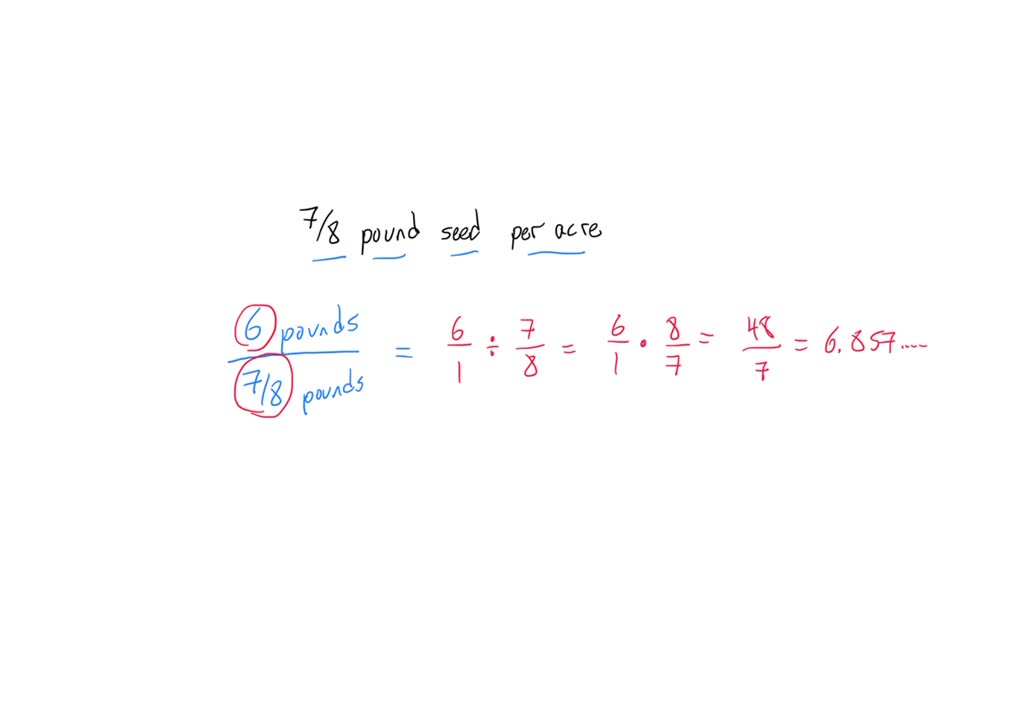 7/8 pound seed per acre
6 pounds / 7/8 pounds = 6/1 ÷ 7/8 = 6/1 · 8/7 = 48/7 = 6.857....